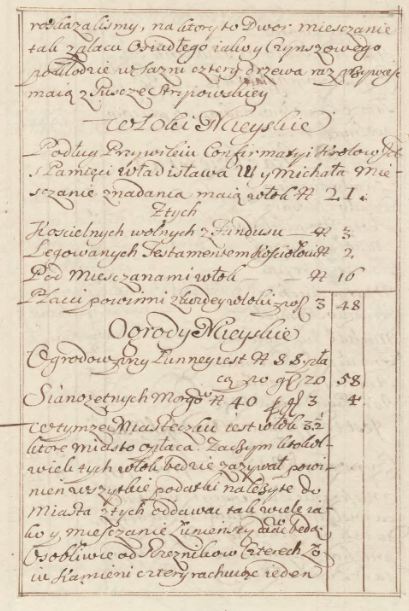 roskazalismy, na ktory to Dwor miesczanie
tak z placu Osiadłego iako y Czynszowego
po kłodzie w sązni cztery drzewa raz przywiesc
maią z Pusczee
Włoki Mieyskie
Podług Przywileiu Confirmatyi Krolow
S Pamięci Władisława IV y Michała Mie-
sczanie z nadania maią włok № 21.
Z tych
Koscielnych wolnych z Fundusu № 3
Legowanych Testamentem Kosciołowi № 2
Pod Miesczanami włok № 16
Płacic powinni z kozdey włoki zł 3 | 48
Ogrody Mieyskie
Ogrodow iest № 58 z pła
cą po gr 20 | 58
Sianozętnych Morgow № 40 p gr 3 | 4
W tymze Miasteczku iest włoki 3½
ktore miasto opłaca. Zaczym ktokol-
wiek tych włok bedzie zazywał powi-
nien wszytkie podatki nalezyte do
Miasta z tych oddawac tak wiele ia-
ko y miesczanie
Osobliwie od Rzeznikow czterech Ło
iu Kamieni cztery rachuiąc ieden